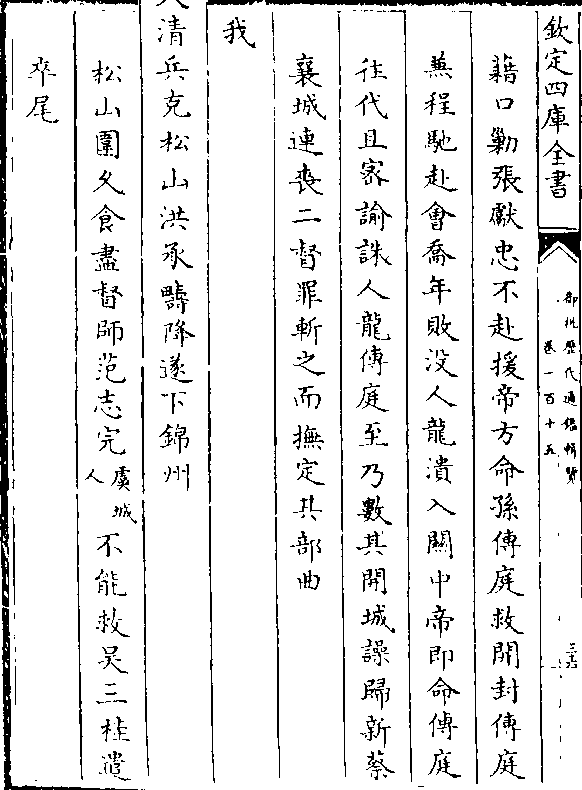 欽定四庫全書
御批歷代通鑑輯覽
卷一百十五
藉口勦張獻忠不赴援帝方命孫傳庭救開封傳庭
兼程馳赴會喬年敗没人龍潰入關中帝即命傳庭
往代且宻諭誅人龍傳庭至乃數其開城譟歸新蔡
襄城連喪二督罪斬之而撫定其部曲
我
大清兵克松山洪承疇降遂下錦州
松山圍久食盡督師范志完虞城人不能救吴三桂遣
卒尾